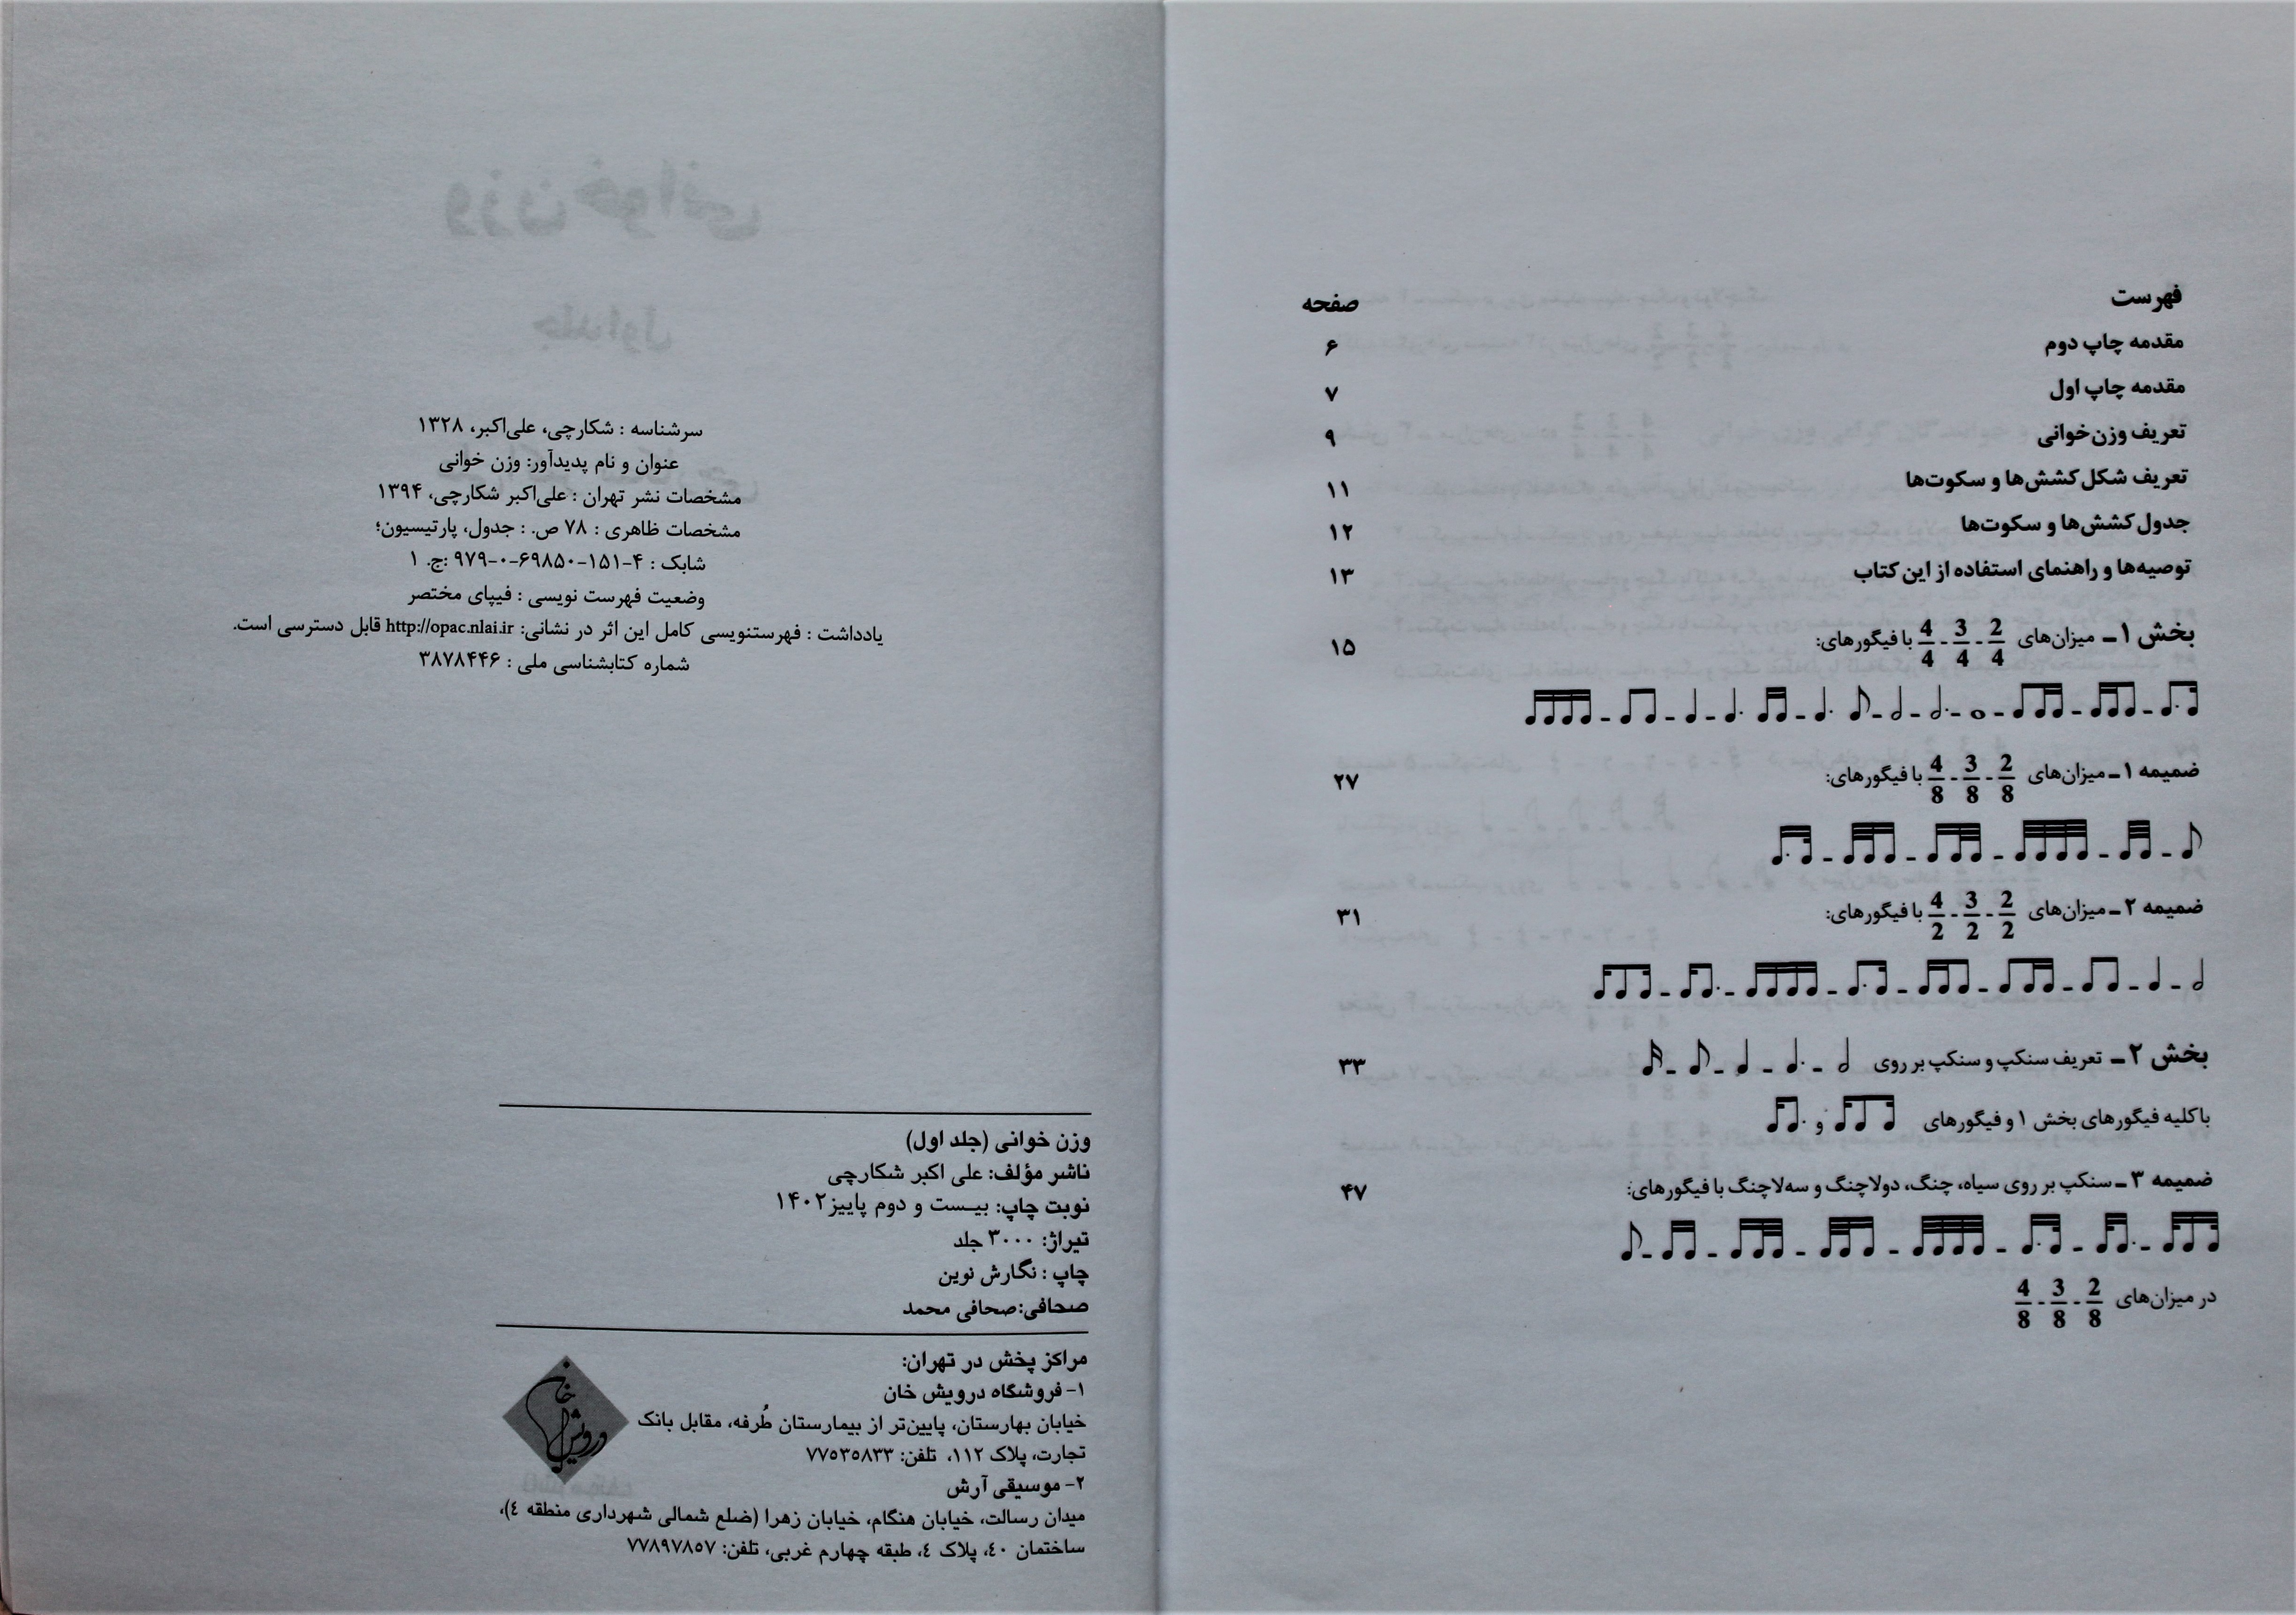 فهرست صفحه
مقدمه چاپ دوم ۶
مقدمه چاپ اول ۷
تعریف وزن‌خوانی ۹
تعریف شکل کشش‌ها و سکوت‌ها ۱۱
جدول کشش‌ها و سکوت‌ها ۱۲
توصیه‌ها و راهنمای استفاده از این کتاب ۱۳
بخش ۱ـ میزان‌های 2/4 - 3/4 - 4/4 با فیگورهای: ۱۵
ضمیمه ۱ـ میزان‌های 2/8 - 3/8 - 4/8 با فیگورهای: ۲۷
ضمیمه ۲ـ میزان‌های 2/2 - 3/2 - 4/2 با فیگورهای: ۳۱
بخش ۲ـ تعریف سنکپ و سنکپ بر روی ۳۳
با کلیه فیگورهای بخش ۱ و فیگورهای و
ضمیمه ۳ـ سنکپ بر روی سیاه، چنگ، دولاچنگ و سه‌لاچنگ با فیگورهای: ۴۷
در میزان‌های 2/8 - 3/8 - 4/8
وزن خوانی
جلد اول
سرشناسه : شکارچی، علی‌اکبر، ۱۳۲۸
عنوان و نام پدیدآور: وزن خوانی
مشخصات نشر تهران : علی‌اکبر شکارچی، ۱۳۹۴
مشخصات ظاهری : ۷۸ ص. : جدول، پارتیسیون؛
شابک : ۴-۱۵۱-۶۹۸۵۰-۰-۹۷۹ :ج. ۱
وضعیت فهرست نویسی : فیپای مختصر
یادداشت : فهرستنویسی کامل این اثر در نشانی: http://opac.nlai.ir قابل دسترسی است.
شماره کتابشناسی ملی : ۳۸۷۸۴۴۶
وزن خوانی (جلد اول)
ناشر مؤلف: علی اکبر شکارچی
نوبت چاپ: بیست و دوم پاییز۱۴۰۲
تیراژ: ۳۰۰۰ جلد
چاپ : نگارش نوین
صحافی:صحافی محمد
مراکز پخش در تهران:
۱- فروشگاه درویش خان
خیابان بهارستان، پایین‌تر از بیمارستان طُرفه، مقابل بانک
تجارت، پلاک ۱۱۲، تلفن: ۷۷۵۳۵۸۳۳
۲- موسیقی آرش
میدان رسالت، خیابان هنگام، خیابان زهرا (ضلع شمالی شهرداری منطقه ٤)،
ساختمان ٤٠، پلاک ٤، طبقه چهارم غربی، تلفن: ۷۷۸۹۷۸۵۷
درویش خان